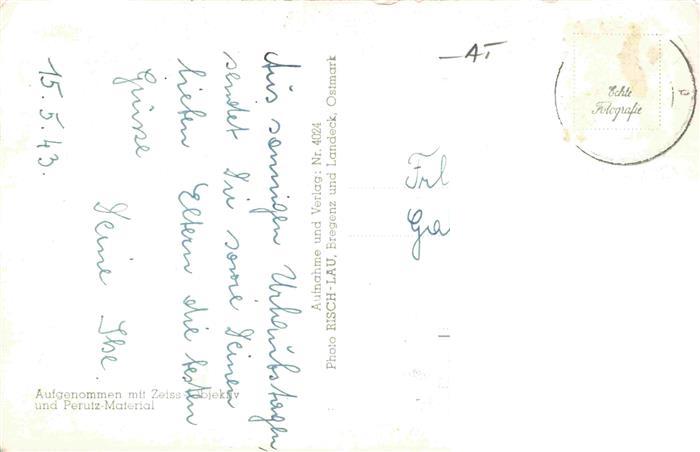 Aus sonnigen Urlaubstagen,
sendet Dir sowie Deinen
lieben Eltern die besten
Grüsse
Deine Ilse.
15.5.43.
Aufnahme und Verlag: Nr. 4024
Photo RISCH-LAU, Bregenz und Landeck, Ostmark
Aufgenommen mit Zeiss-Objektiv
und Perutz-Material
Echte
Fotografie
Frl
Ga